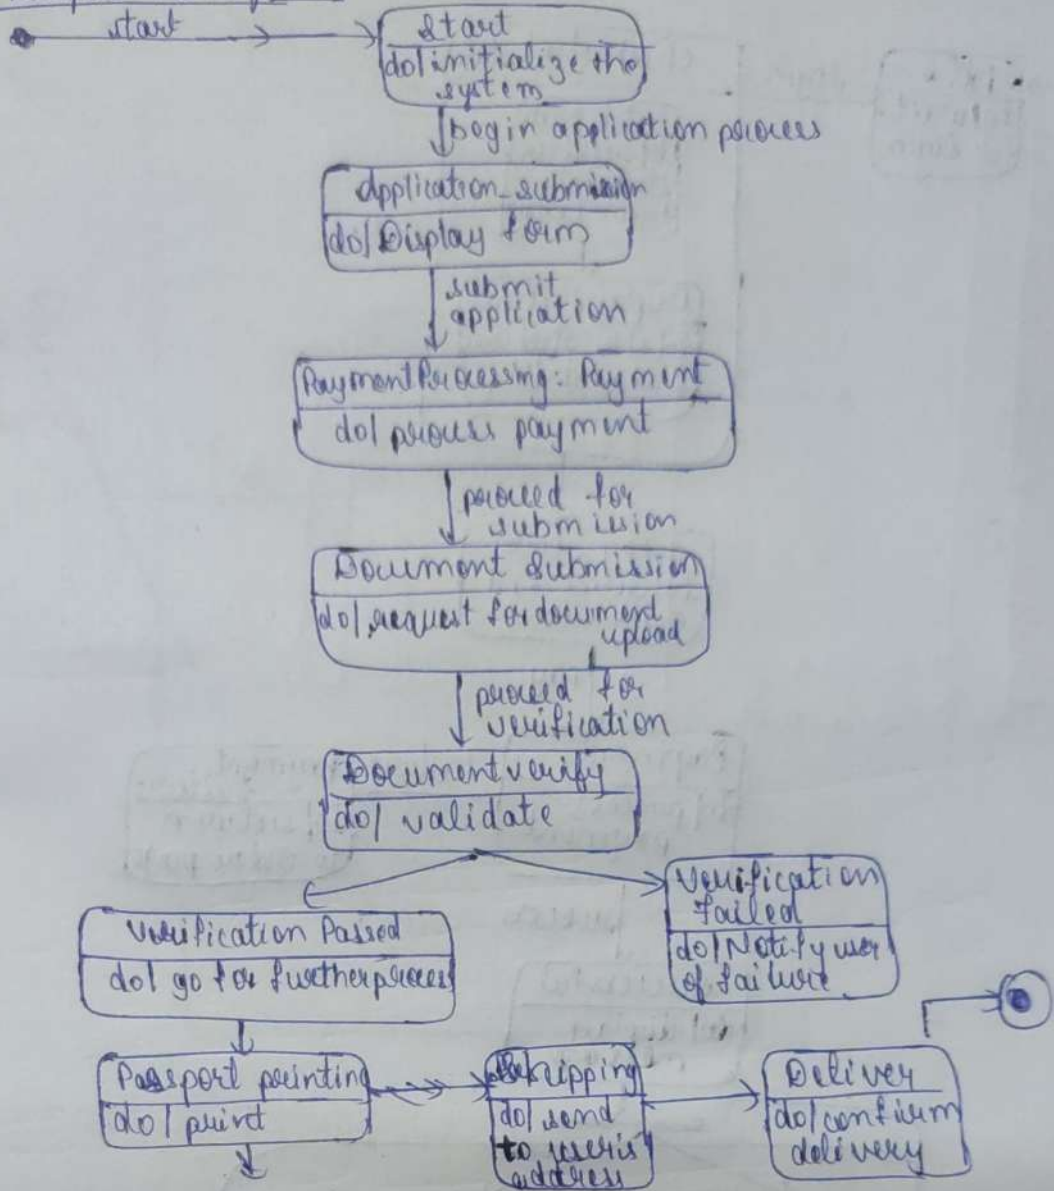 start
Start
do/initialize the
system
begin application process
Application_submission
do/Display form
submit
application
PaymentProcessing: Payment
do/ process payment
proceed for
submission
Document Submission
do/request for document
upload
proceed for
verification
Document verify
do/ validate
Verification
Failed
do/Notify user
of failure
Verification Passed
do/ go for further process
Passport printing
do/ print
Shipping
do/send
to user's
address
Deliver
do/confirm
delivery